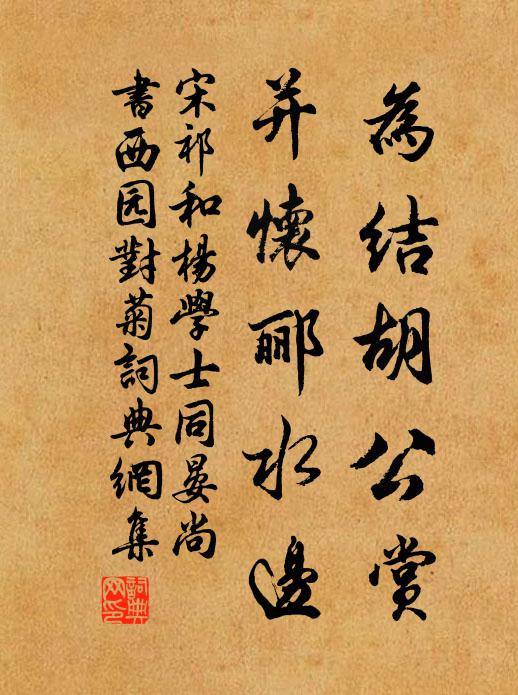 為结胡公赏
并懷郦水邊
宋祁和楊學士同晏尚
書西园對菊詞典網集
詞典网印